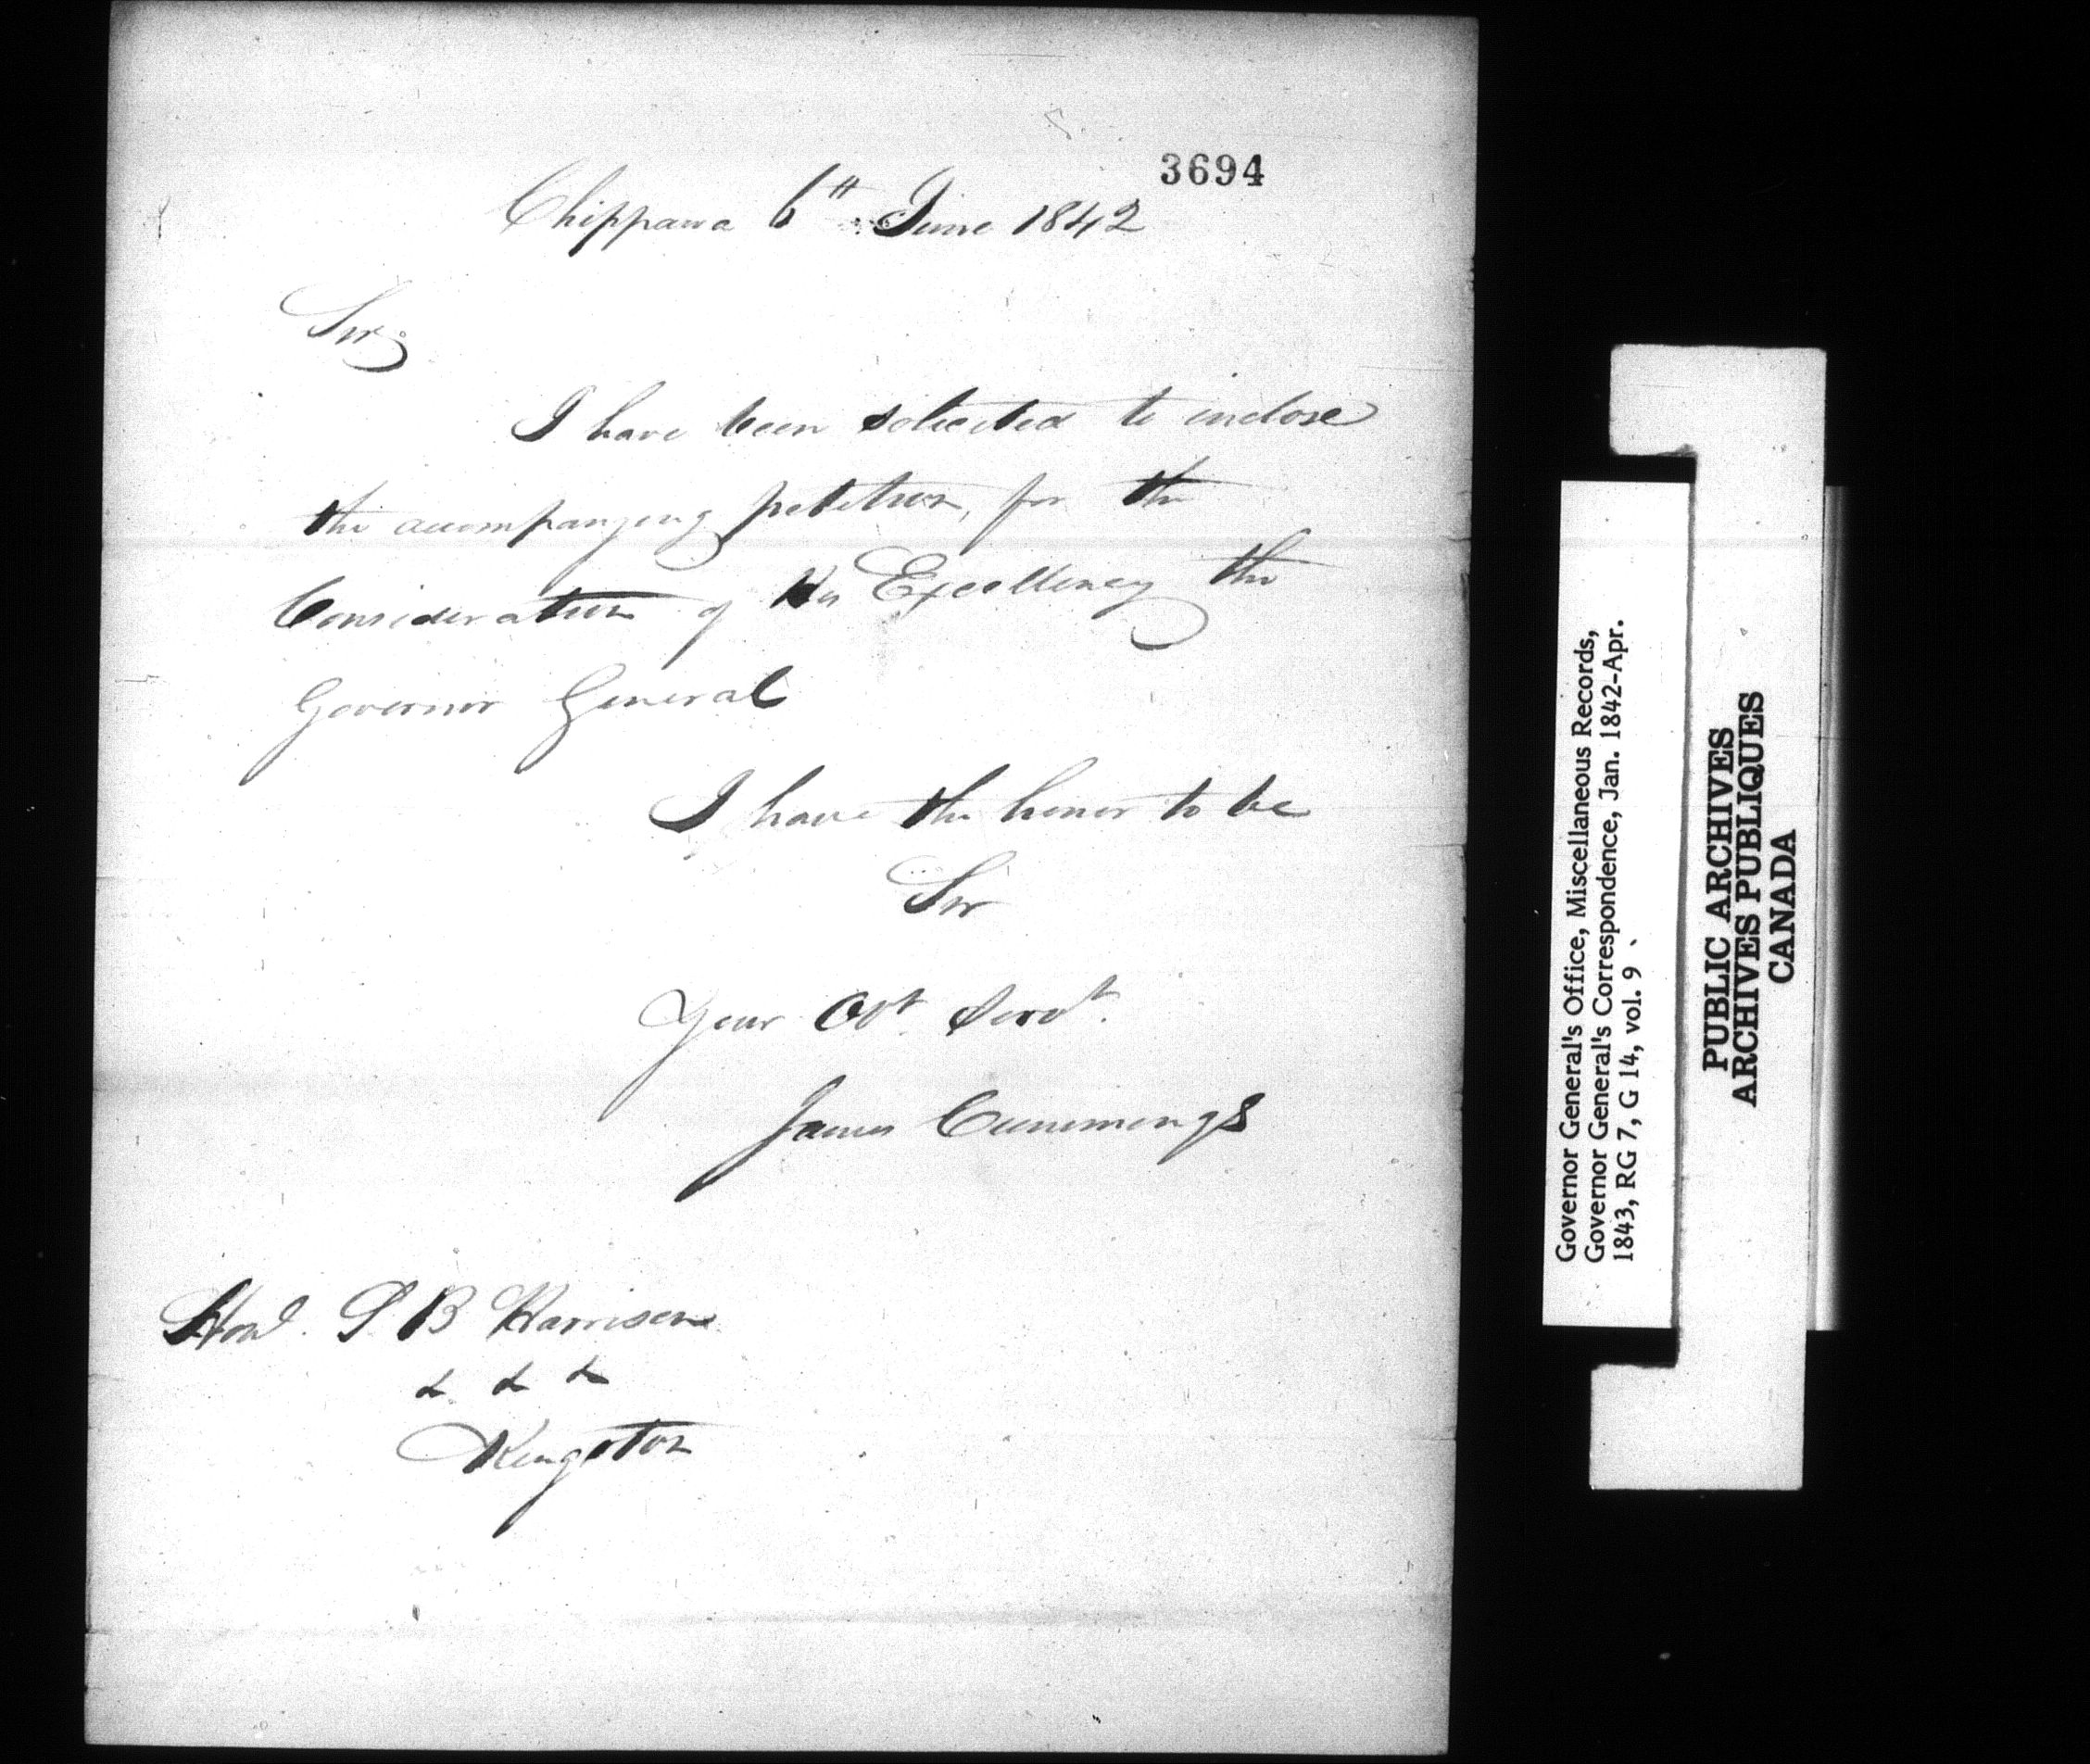 3694
Chippawa 6th June 1842
Sir,
I have been solicited to inclose
the accompanying petition, for the
Consideration of His Excellency the
Governor General
I have the honor to be
Sir
Your Obt. Servt.
James Cummings
Honl. S. B Harrison
& & &
Kingston
Governor General's Office, Miscellaneous Records,
Governor General's Correspondence, Jan. 1842-Apr.
1843, RG 7, G 14, vol. 9
PUBLIC ARCHIVES
ARCHIVES PUBLIQUES
CANADA